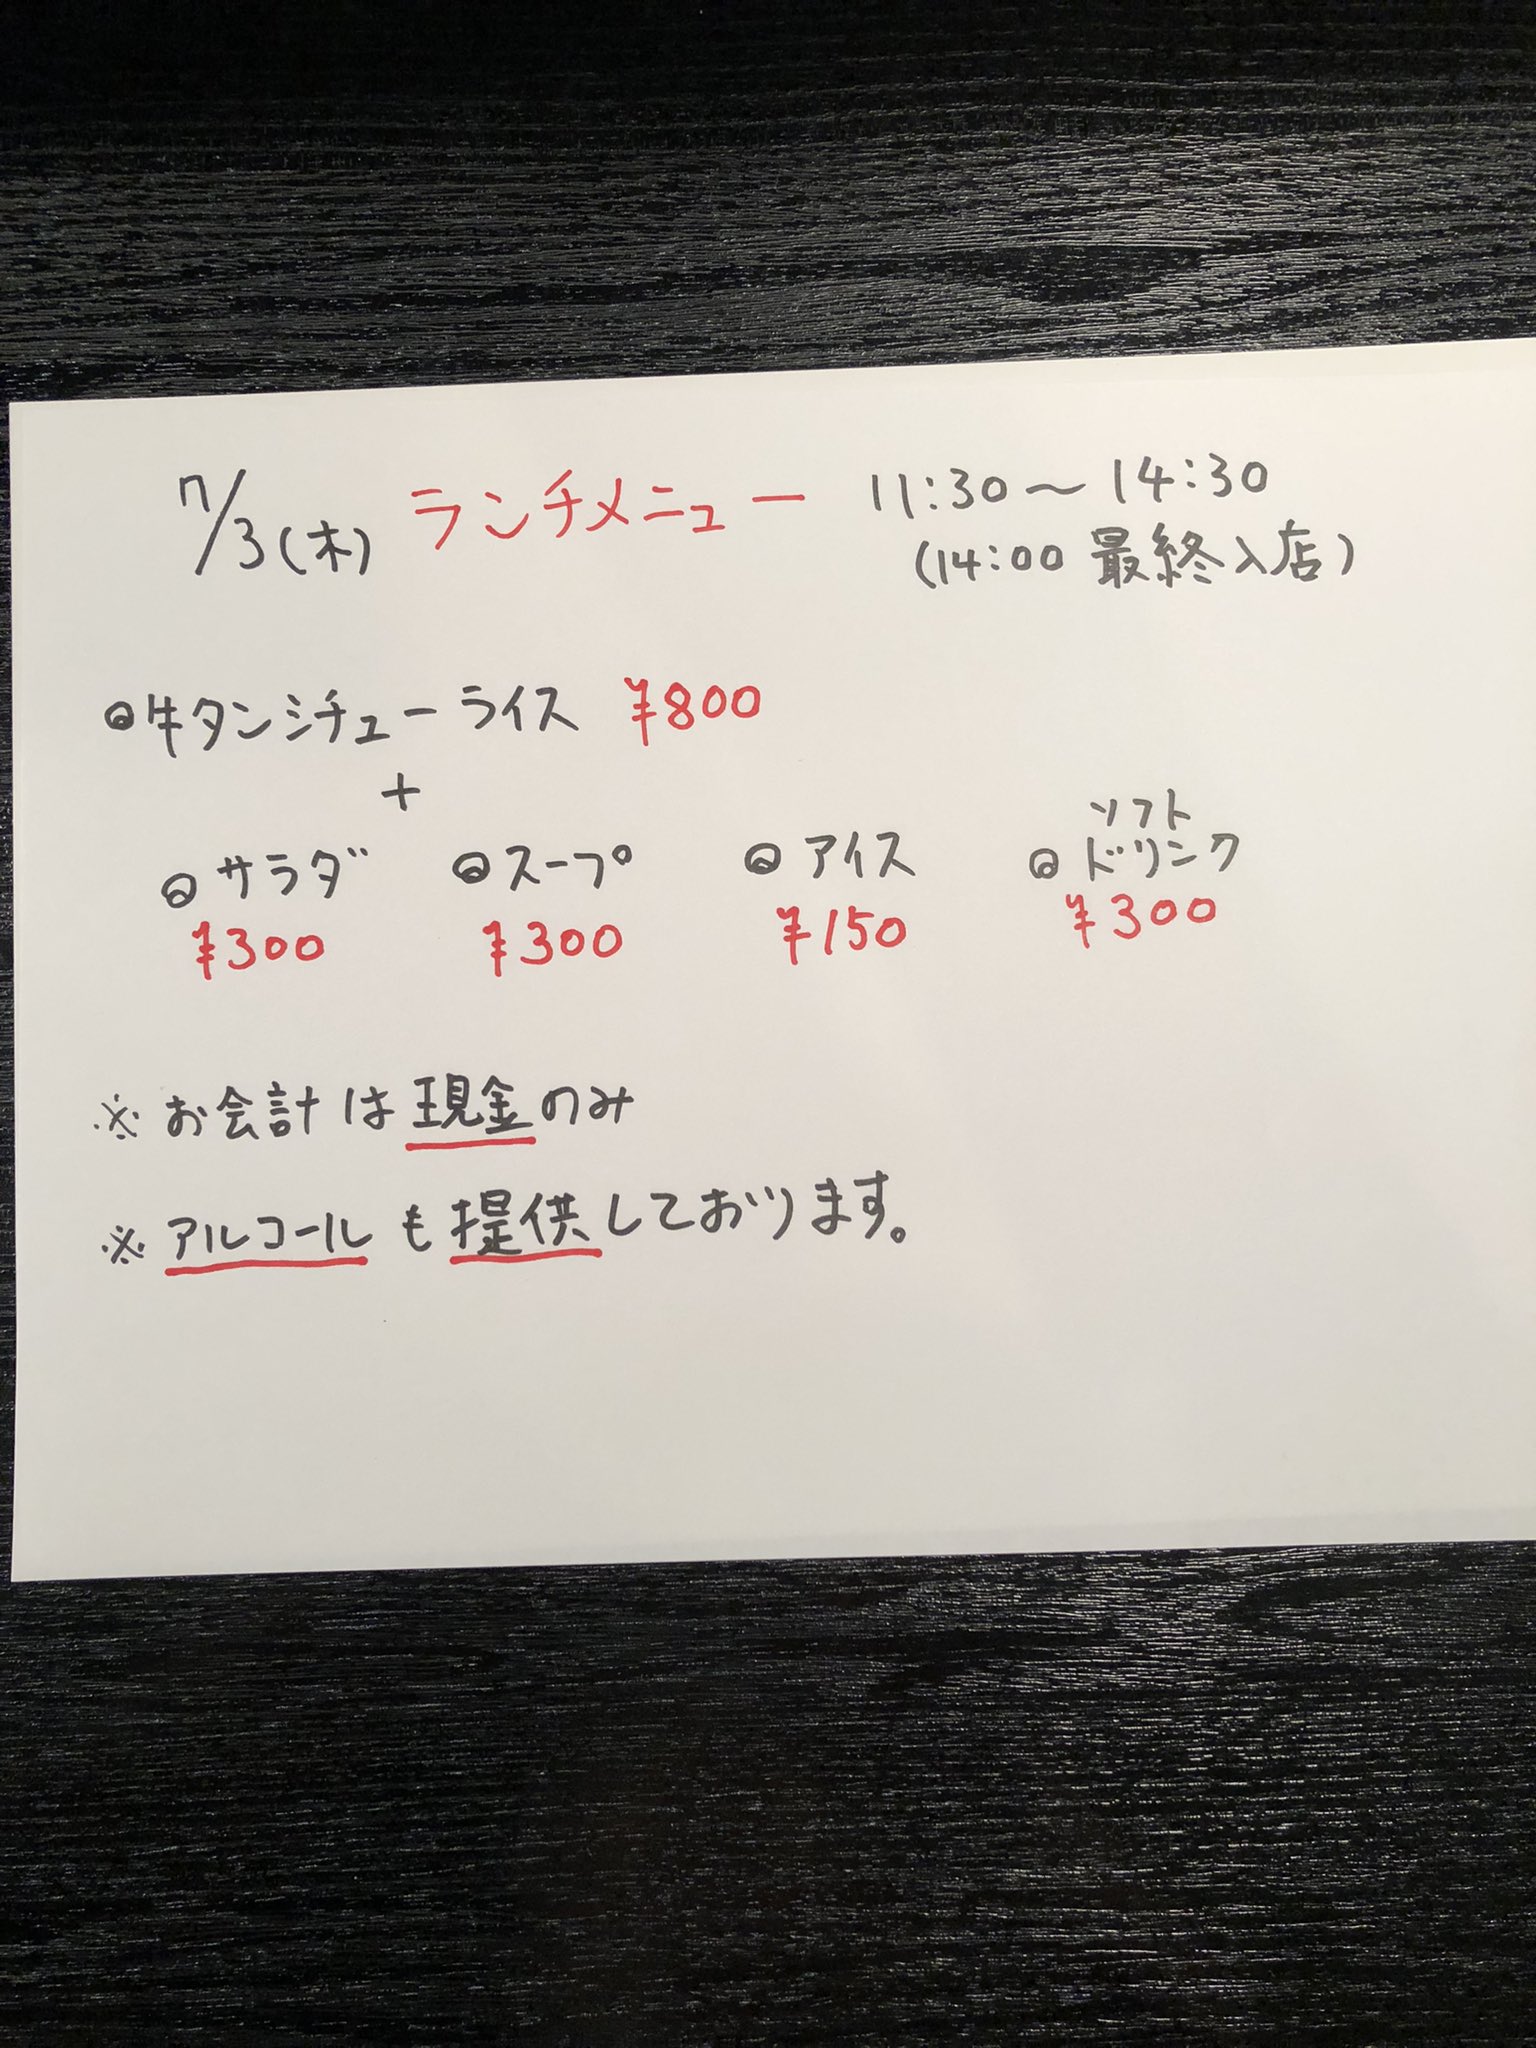 7/3(木) ランチメニュー 11:30〜14:30
(14:00 最終入店)
◎牛タンシチューライス ¥800
+
◎サラダ ◎スープ ◎アイス ◎ソフトドリンク
¥300 ¥300 ¥150 ¥300
※お会計は現金のみ
※アルコールも提供しております。